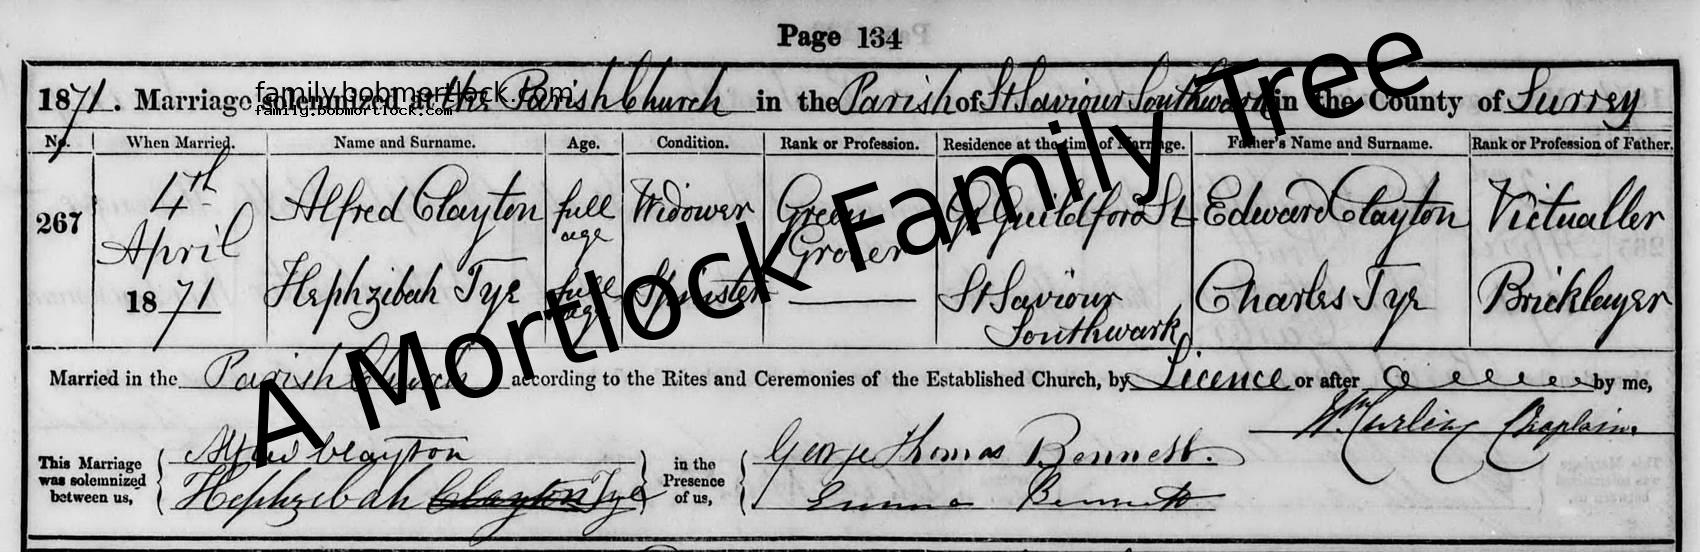 Page 134
1871. Marriage solemnized at the Parish Church in the Parish of St Saviour Southwark in the County of Surrey
family.bobmortlock.com
family.bobmortlock.com
No. When Married. Name and Surname. Age. Condition. Rank or Profession. Residence at the time of Marriage. Father's Name and Surname. Rank or Profession of Father.
267 4th April 1871 Alfred Clayton full age Widower Green Grocer Gt Guildford St Edward Clayton Victualler
Hephzibah Tye full age Spinster St Saviour Southwark Charles Tye Bricklayer
A Mortlock Family Tree
Married in the Parish Church according to the Rites and Ceremonies of the Established Church, by Licence or after by me,
Wm Curling Chaplain.
This Marriage was solemnized between us, Alfred Clayton
Hephzibah Clayton Tye
in the Presence of us, George Thomas Bennett.
Emma Bennett